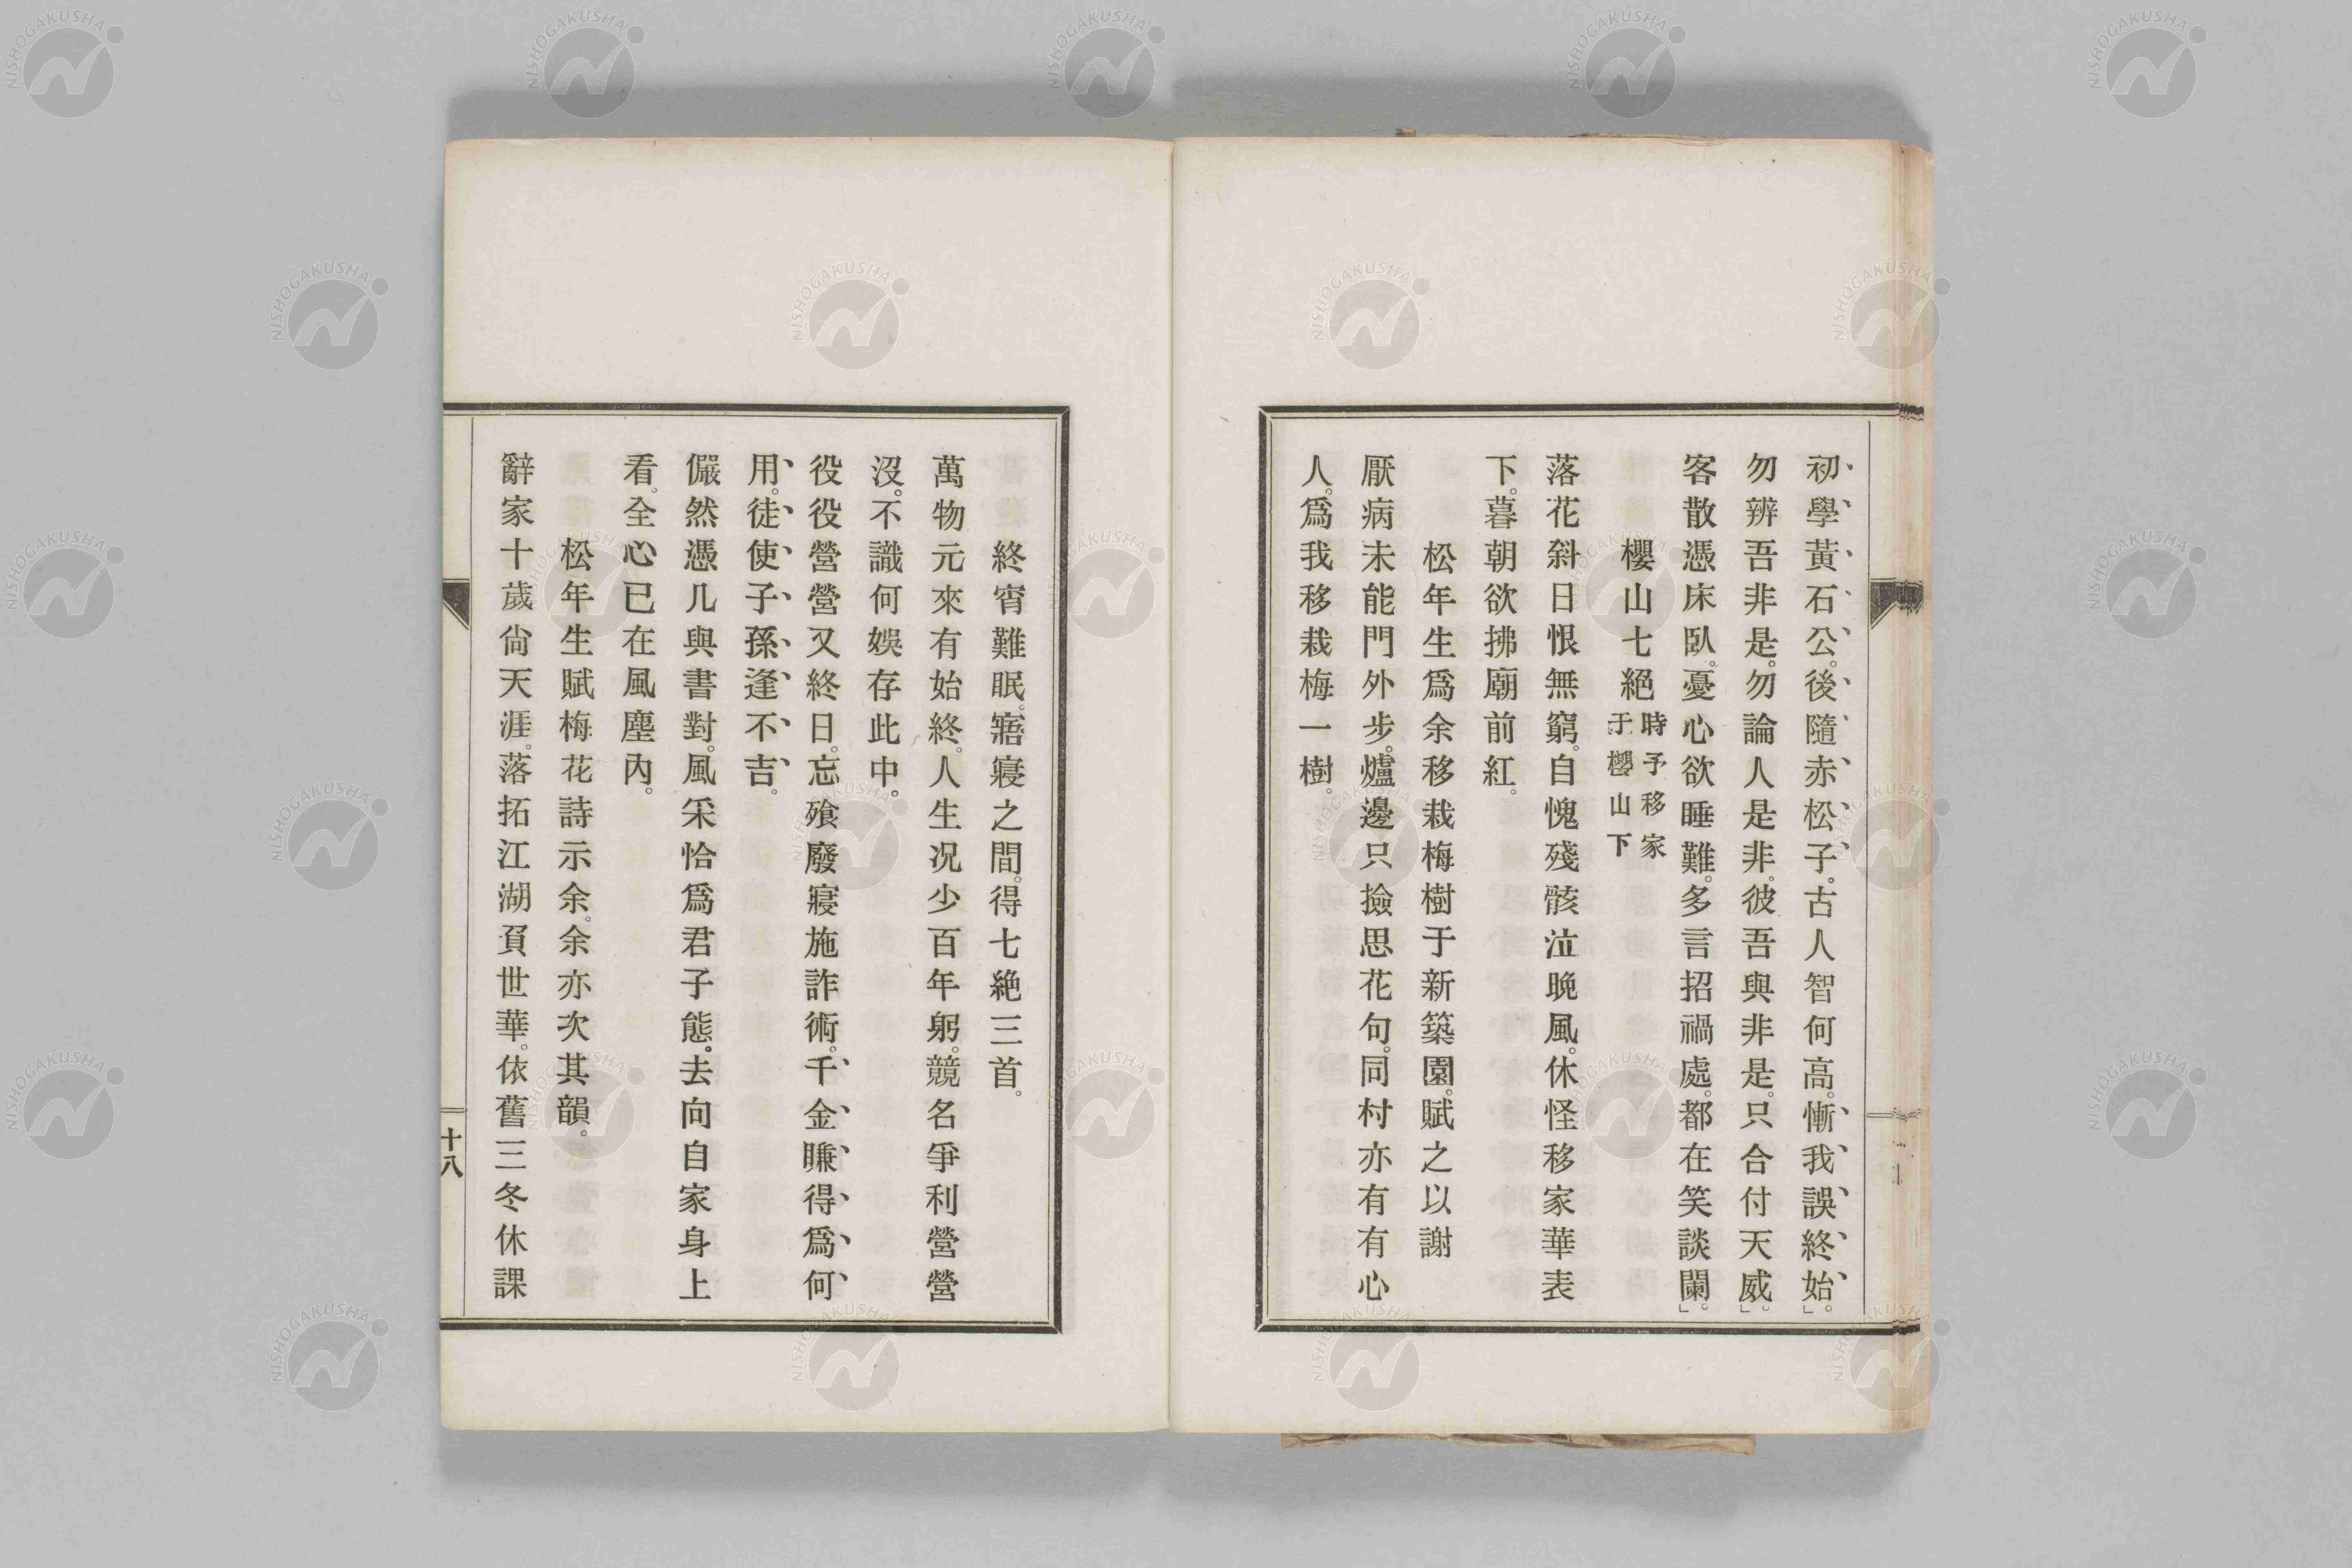 初學黃石公。後隨赤松子。古人智何高。慚我誤終始。」
勿辨吾非是。勿論人是非。彼吾與非是。只合付天威。」
客散憑床臥。憂心欲睡難。多言招禍處。都在笑談闌。」
櫻山七絕 時予移家于櫻山下
落花斜日恨無窮。自愧殘骸泣晚風。休怪移家華表
下。暮朝欲拂廟前紅。
松年生爲余移栽梅樹于新築園。賦之以謝
厭病未能門外步。爐邊只撿思花句。同村亦有有心
人。爲我移栽梅一樹。
終宵難眠。寤寢之間。得七絶三首。
萬物元來有始終。人生况少百年躬。競名爭利營營
沒。不識何娛存此中。
役役營營又終日。忘飱廢寢施詐術。千金賺得爲何
用。徒使子孫逢不吉。
儼然憑几與書對。風采恰爲君子態。去向自家身上
看。全心已在風塵內。
松年生賦梅花詩示余。余亦次其韻。
辭家十歲尙天涯。落拓江湖負世華。依舊三冬休課
十八
NISHOGAKUSHA